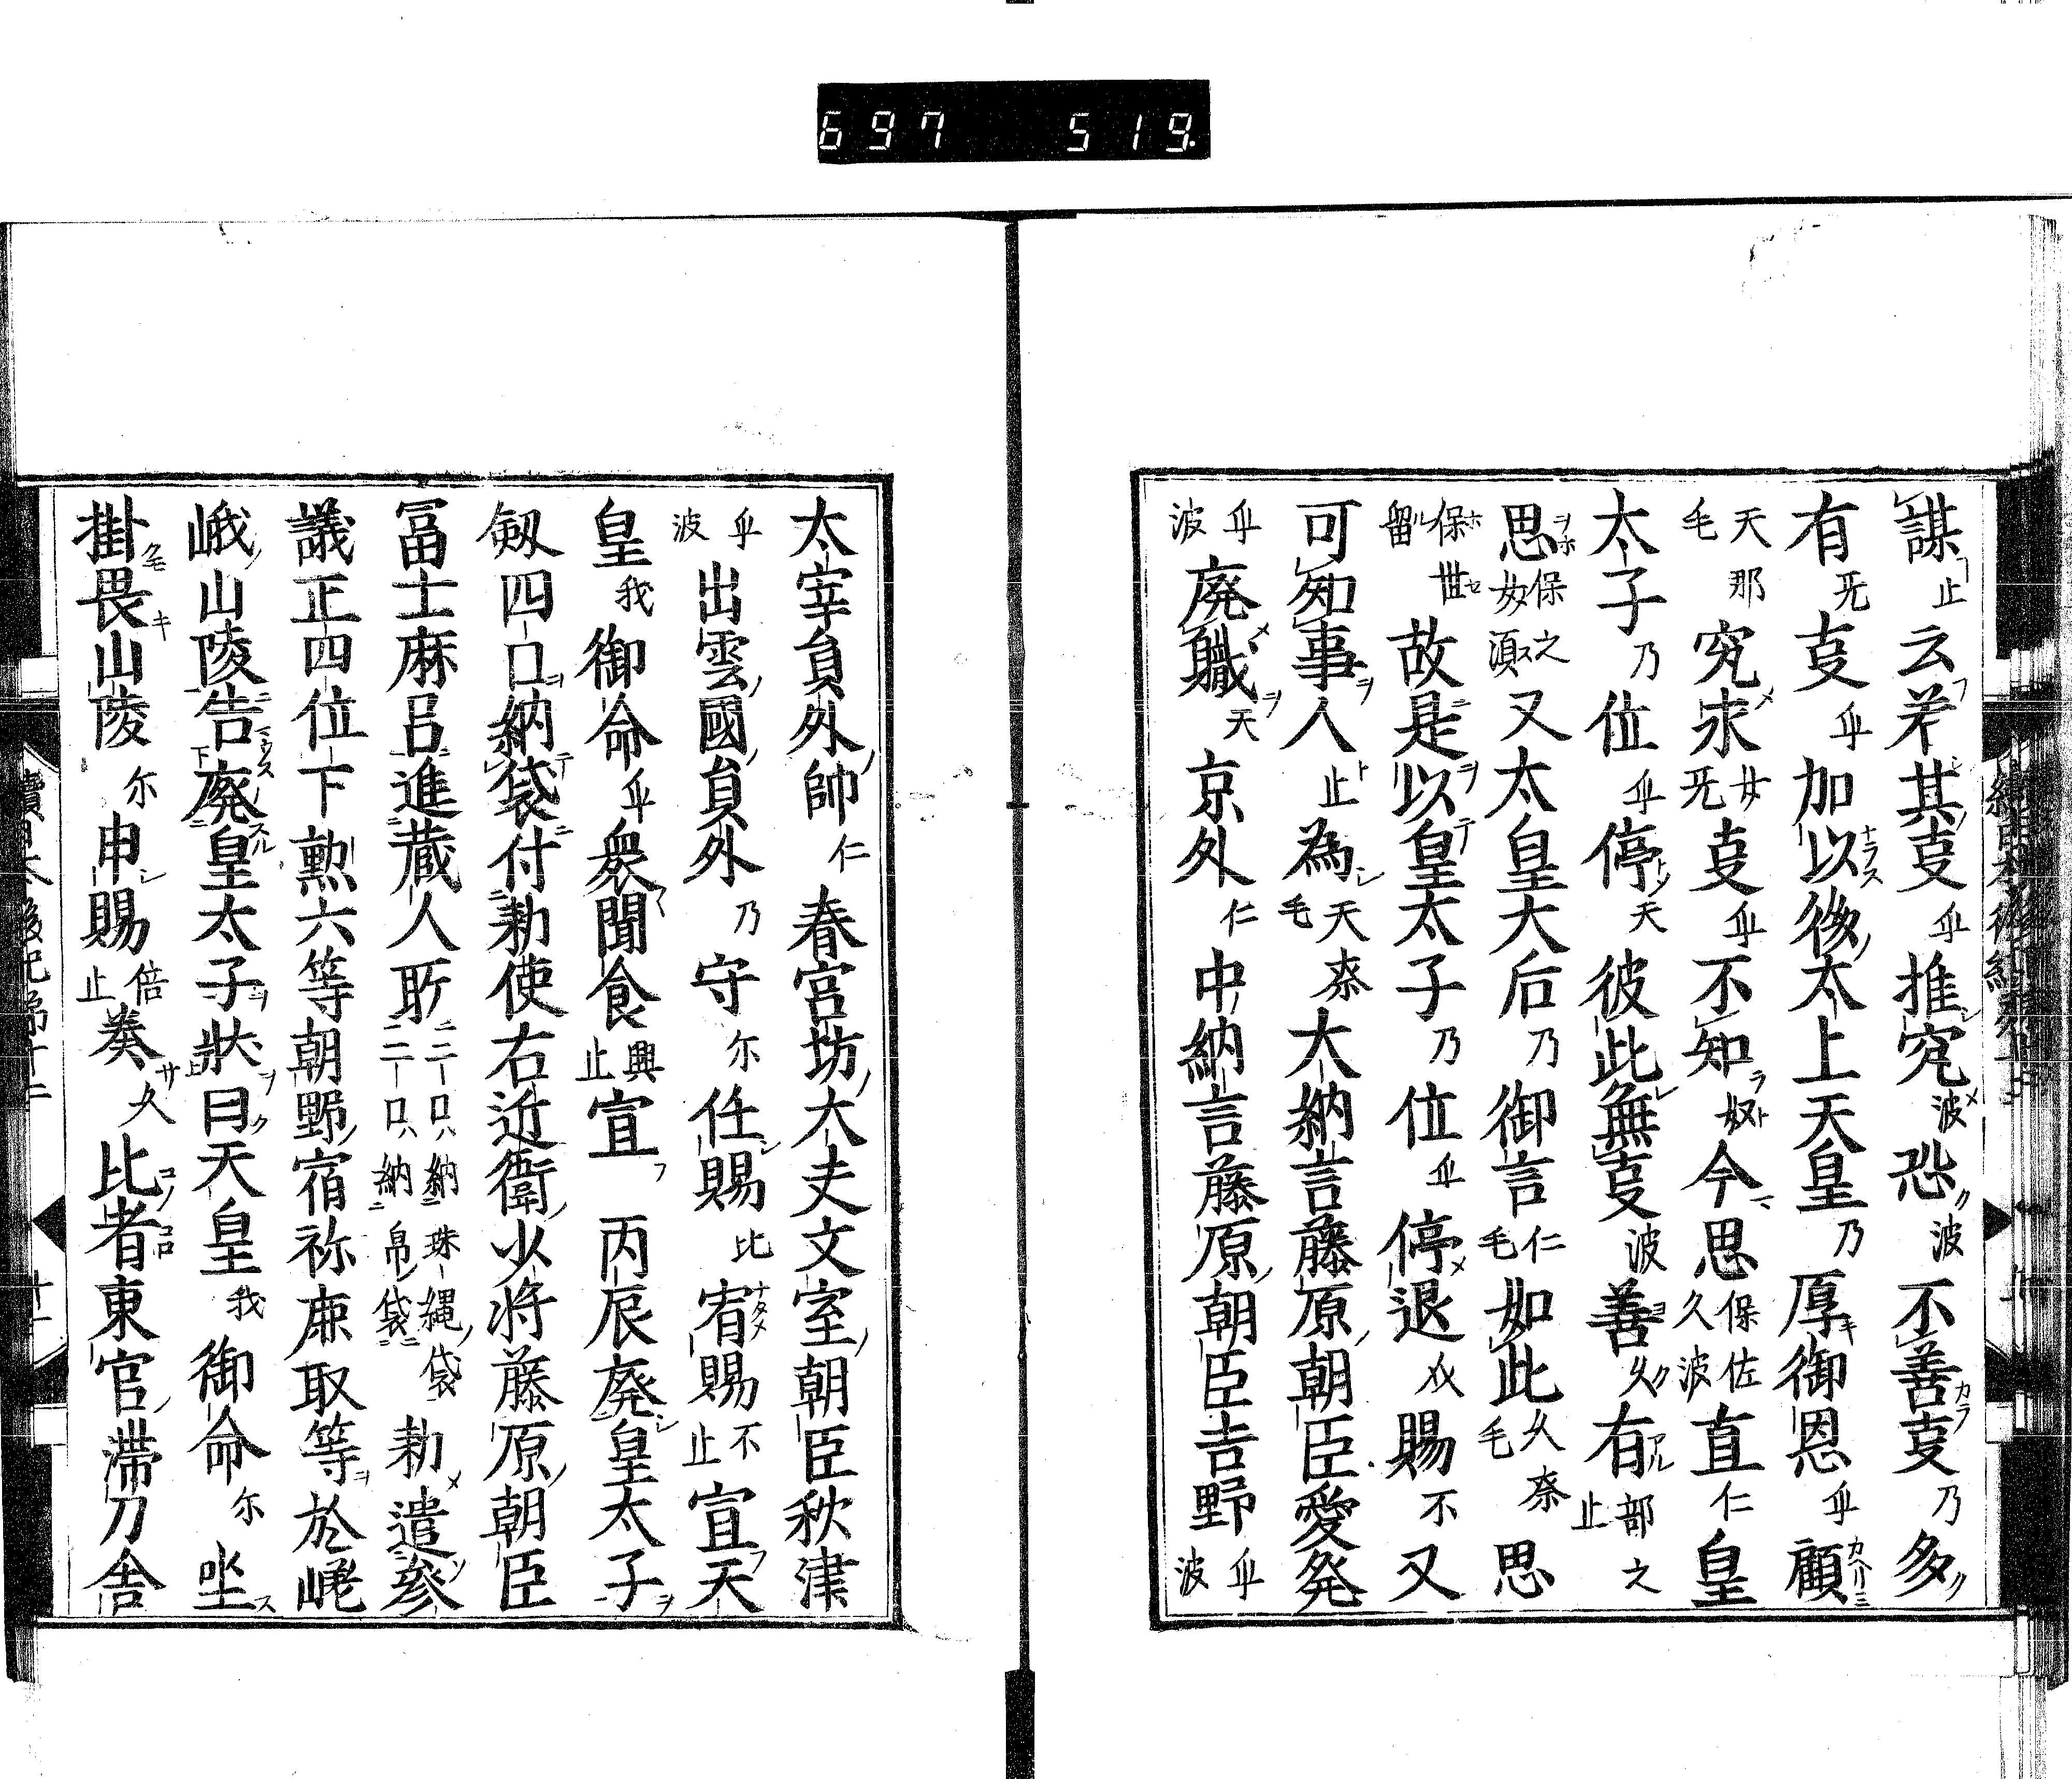 697 519.
謀止云弟其㕝乎推究波恐波不善㕝乃多
有旡㕝乎加以後太上天皇乃厚御恩乎顧
天毛那究求女旡㕝乎不知奴今思保佐久波直仁皇
太子乃位乎停天彼此無㕝波善久有部之止
思保之女須又太皇大后乃御言仁毛如此久奈毛思
保世留故是以皇太子乃位乎停退㕛賜不又
可知事人止為天毛奈大納言藤原朝臣愛発
乎波廃職天京外仁中納言藤原朝臣吉野乎波
太宰員外帥仁春宮坊大夫文室朝臣秋津
乎波出雲國員外乃守尓任賜比宥賜不止宣天
皇我御命乎衆聞食與止宣丙辰廃皇太子
剱四口納袋付勅使右近衛少将藤原朝臣
冨士麻呂進蔵人所二口納珠縄袋二口納帛袋勅遣参
議正四位下勲六等朝野宿祢鹿取等於嵯
峨山陵告廃皇太子状曰天皇我御命尓坐
掛畏山陵尓申賜倍止奏久比者東宮帯刀舎
續日本後紀第十二 十一